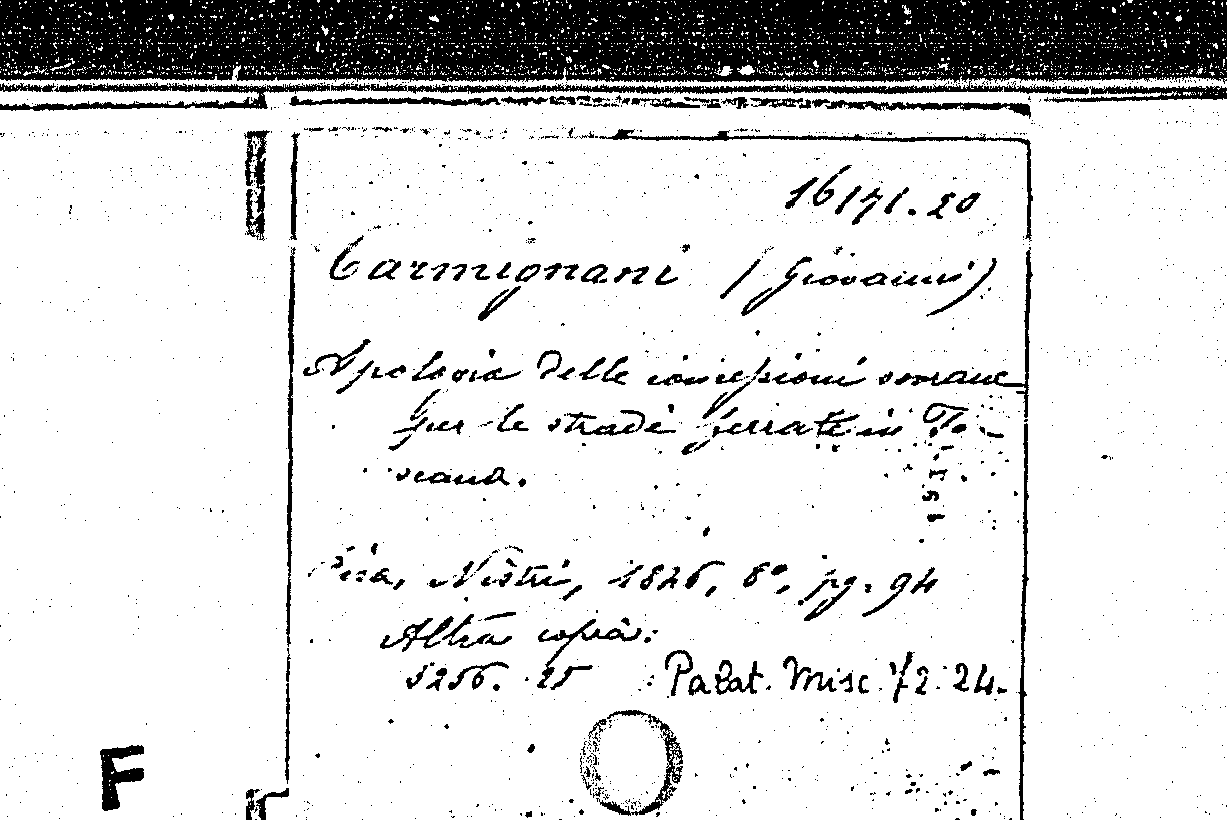 16171.20
Carmignani (Giovanni)
Apologia delle concessioni sovrane
per le strade ferrate in To-
scana.
Pisa, Nistri, 1846, 8°, pg. 94
Altra copia:
5256. 25 Palat. Misc. 72. 24.
F